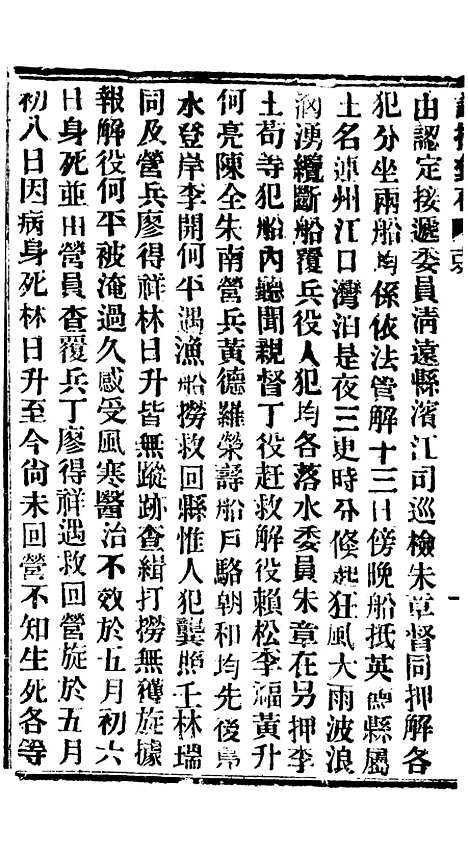 由認定接遞委員清遠縣濱江司巡檢朱章督同押解各
犯分坐兩船均係依法管解十三日傍晚船抵英德縣屬
土名連州江口灣泊是夜三更時分倐起狂風大雨波浪
洶湧纜斷船覆兵役人犯均各落水委員朱章在另押李
土苟等犯船內聽聞親督丁役赶救解役賴松李福黃升
何亮陳全朱南營兵黃德羅榮壽船戶駱朝和均先後鳧
水登岸李開何平遇漁船撈救回縣惟人犯龔照壬林瑞
同及營兵廖得祥林日升皆無蹤跡查緝打撈無獲旋據
報解役何平被淹過久感受風寒醫治不效於五月初六
日身死並由營員查覆兵丁廖得祥遇救回營旋於五月
初八日因病身死林日升至今尙未回營不知生死各等